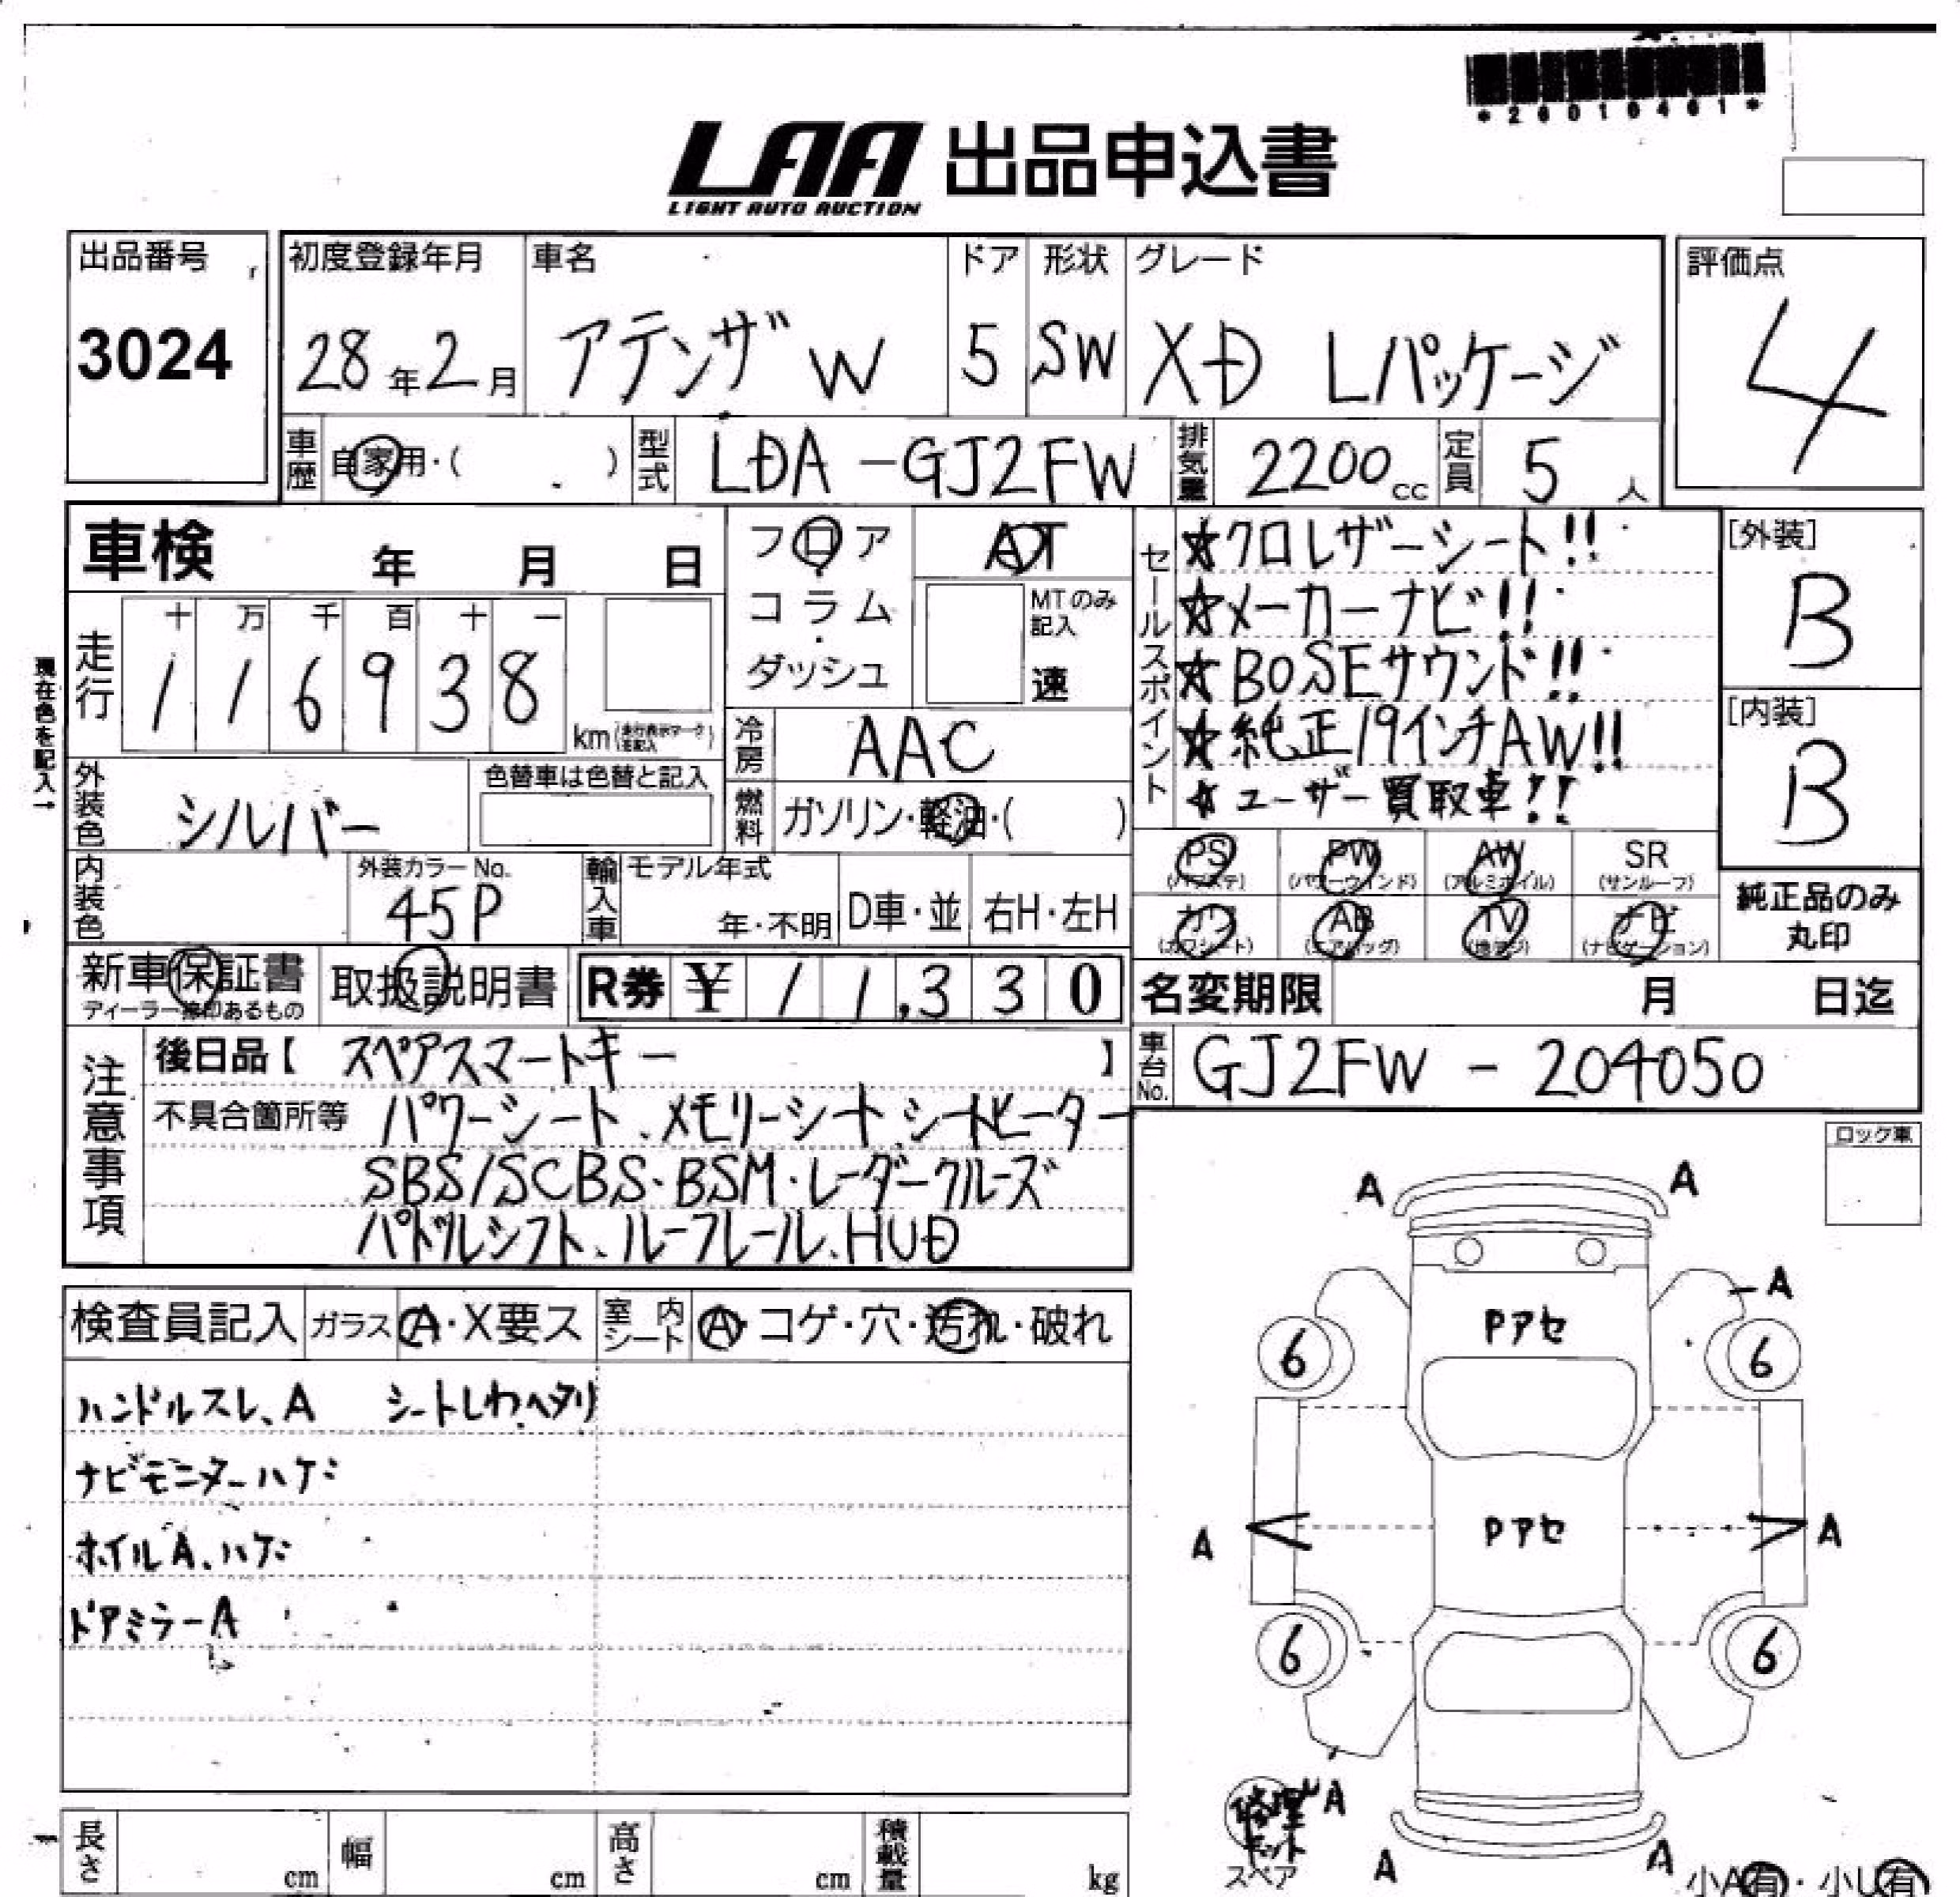 *26010461*
LAA 出品申込書
LIGHT AUTO AUCTION
出品番号 3024
初度登録年月 28年2月
車名 アテンザ W
ドア 5
形状 SW
グレード XD Lパッケージ
評価点 4
車歴 自家用・( )
型式 LDA-GJ2FW
排気量 2200cc
定員 5人
車検 年 月 日
フロア・コラム・ダッシュ
AT
MTのみ記入 速
セールスポイント
☆クロレザーシート!!
☆メーカーナビ!!
☆BOSEサウンド!!
☆純正19インチAW!!
☆ユーザー買取車!!
[外装] B
[内装] B
現在色を記入→
走行 十 万 千 百 十 一
116938 km
冷房 AAC
外装色 シルバー
色替車は色替と記入
燃料 ガソリン・軽油・( )
内装色
外装カラーNo. 45P
輸入車 モデル年式 年・不明 D車・並 右H・左H
PS (パワステ) PW (パワーウインド) AW (アルミホイル) SR (サンルーフ)
カワ (カワシート) AB (エアバッグ) TV (地デジ) ナビ (ナビゲーション)
純正品のみ丸印
新車保証書 ディーラー捺印あるもの
取扱説明書
R券 ¥11,330
名変期限 月 日迄
注意事項
後日品【 スペアスマートキー 】
車台No. GJ2FW-204050
不具合箇所等 パワーシート、メモリーシート、シートヒーター
SBS/SCBS・BSM・レーダークルーズ
パドルシフト、ルーフレール、HUD
ロック車
検査員記入 ガラス A・X要ス 室内シート A・コゲ・穴・汚れ・破れ
ハンドルスレ、A シートしわ、ヘタリ
ナビモニターハゲ
ホイルA、ハゲ
ドアミラーA
A A
A
Pアセ
6 6
Pアセ
A A
6 6
A
修理キット
スペア
A A
小A有・小U有
長さ cm 幅 cm 高さ cm 積載量 kg